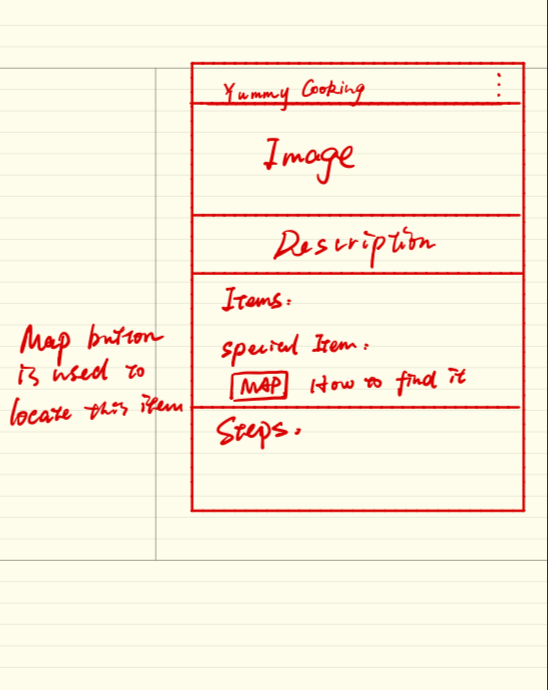 Yummy Cooking
Image
Description
Items:
special Item:
MAP How to find it
Steps:
Map button
is used to
locate this item